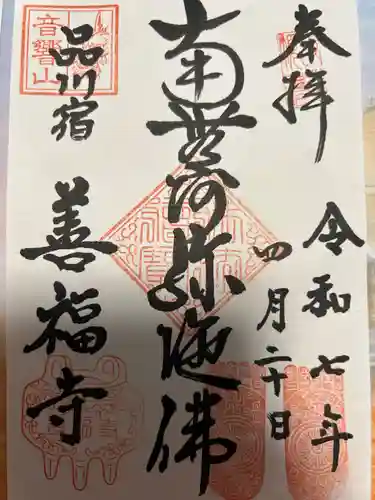 奉拝
令和七年
四月二十日
南無阿弥陀佛
音響山
品川宿
善福寺